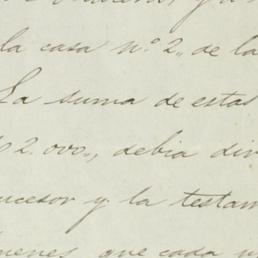 la casa nº 2,, de la
La suma de estas
2.000,, debia div
ucesor y la testam
que cada